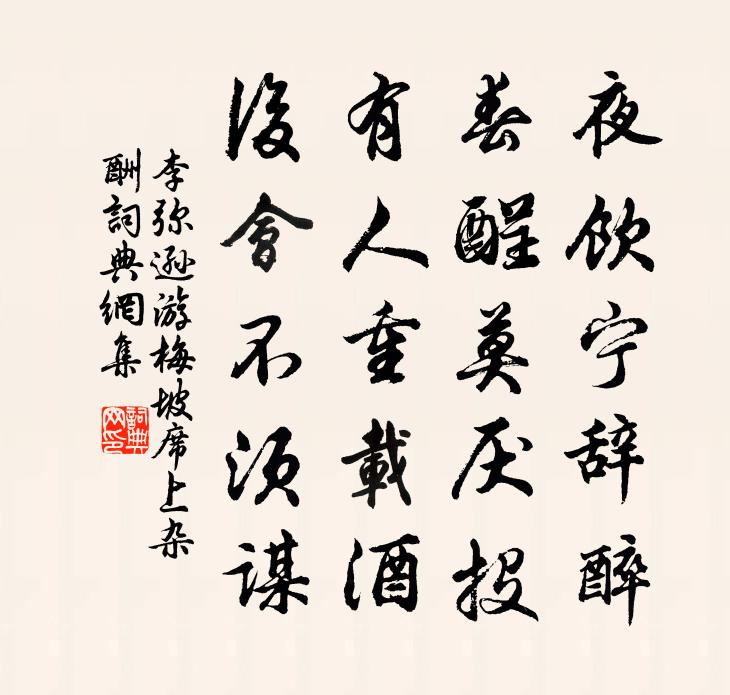 夜饮宁辞醉
春酲莫厌投
有人重载酒
后会不须谋
李弥逊游梅坡席上杂
酬詞典網集
詞典
网印